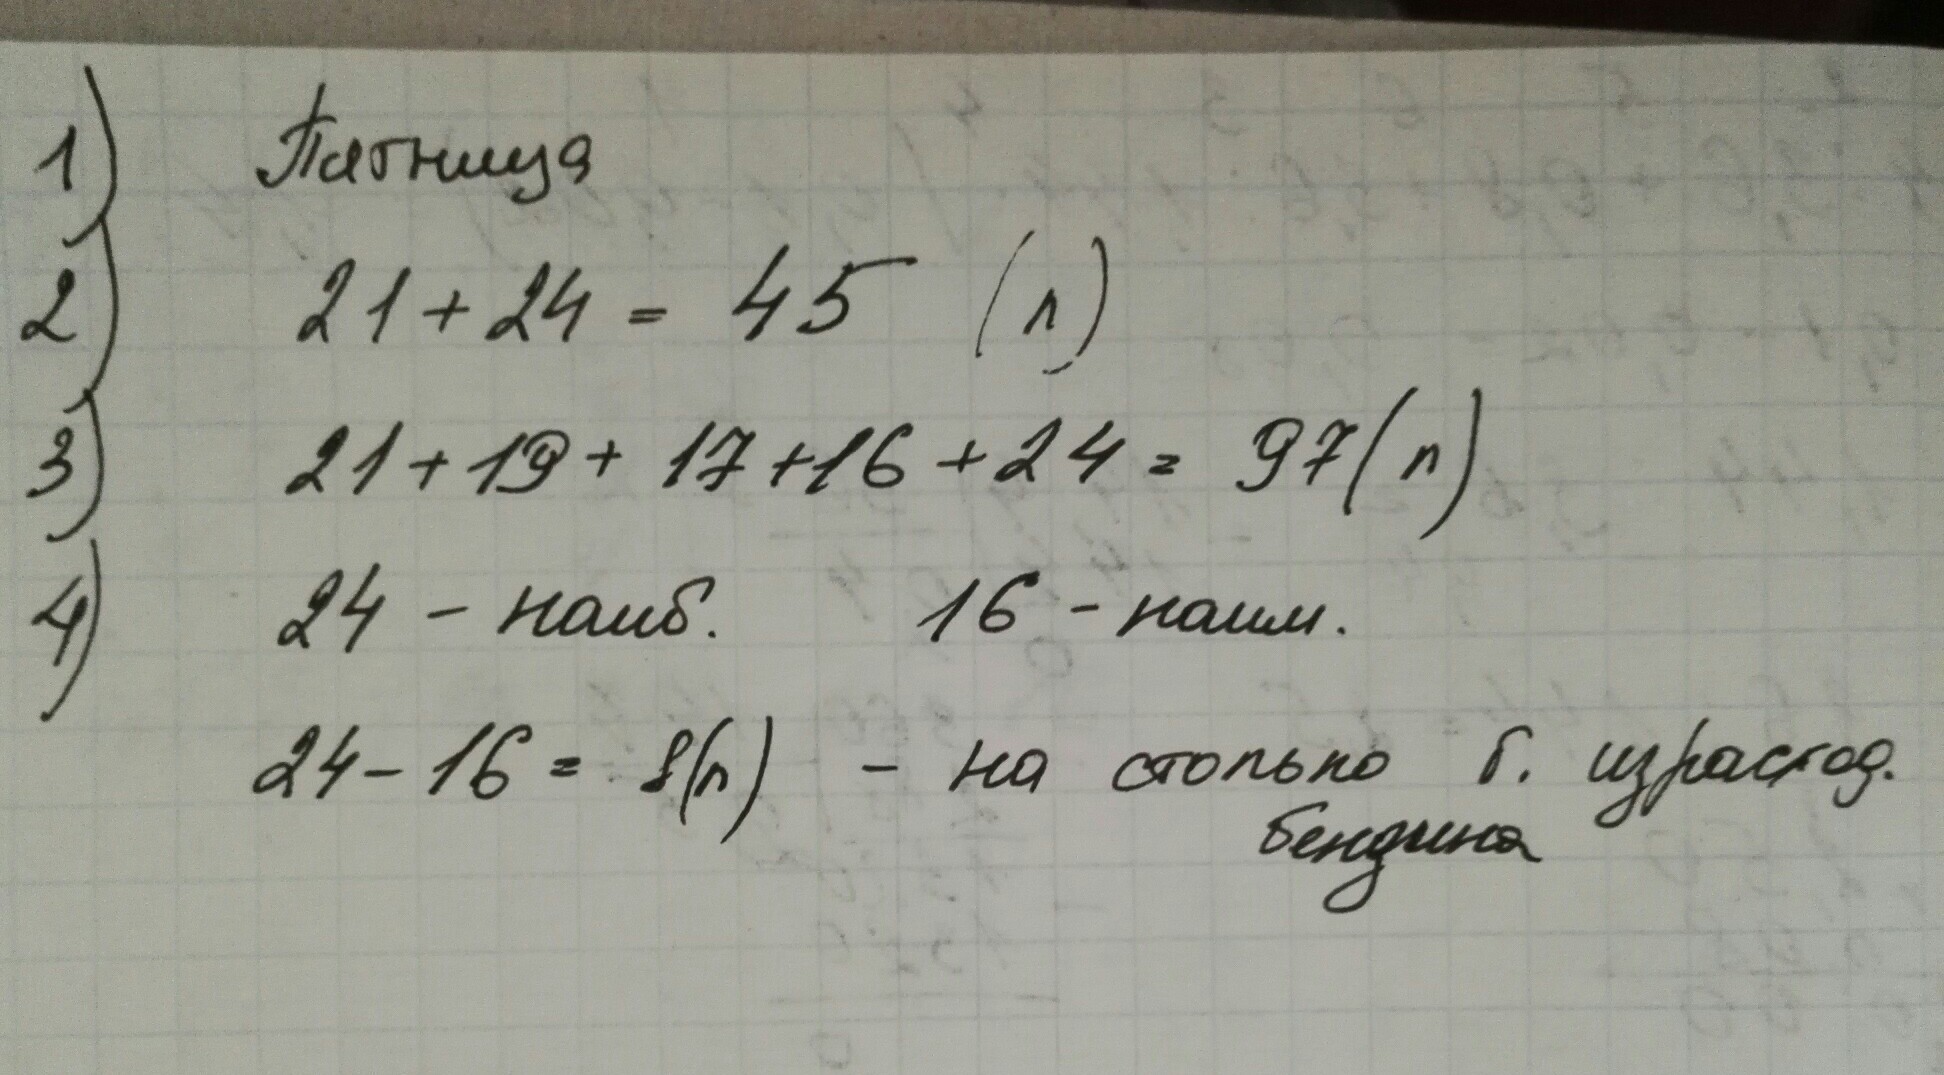 1) Пятница
2) 21 + 24 = 45 (л)
3) 21 + 19 + 17 + 16 + 24 = 97 (л)
4) 24 - наиб. 16 - наим.
24 - 16 = 8 (л) - на столько б. израсход.
бензина